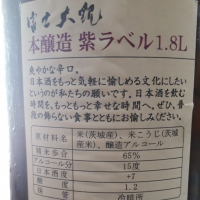 本醸造 紫ラベル1.8L
爽やかな辛口。
日本酒をもっと気軽に愉しめる文化にしたい
というのが私たちの願いです。日本酒を飲む
時間を、もっともっと幸せな時間へ。ぜひ、普
段の飾らない食事とともにお愉しみください。
原材料名 米(茨城産)、米こうじ(茨城
産米)、醸造アルコール
精米歩合 65%
アルコール分 15度
日本酒度 +7
酸度 1.2